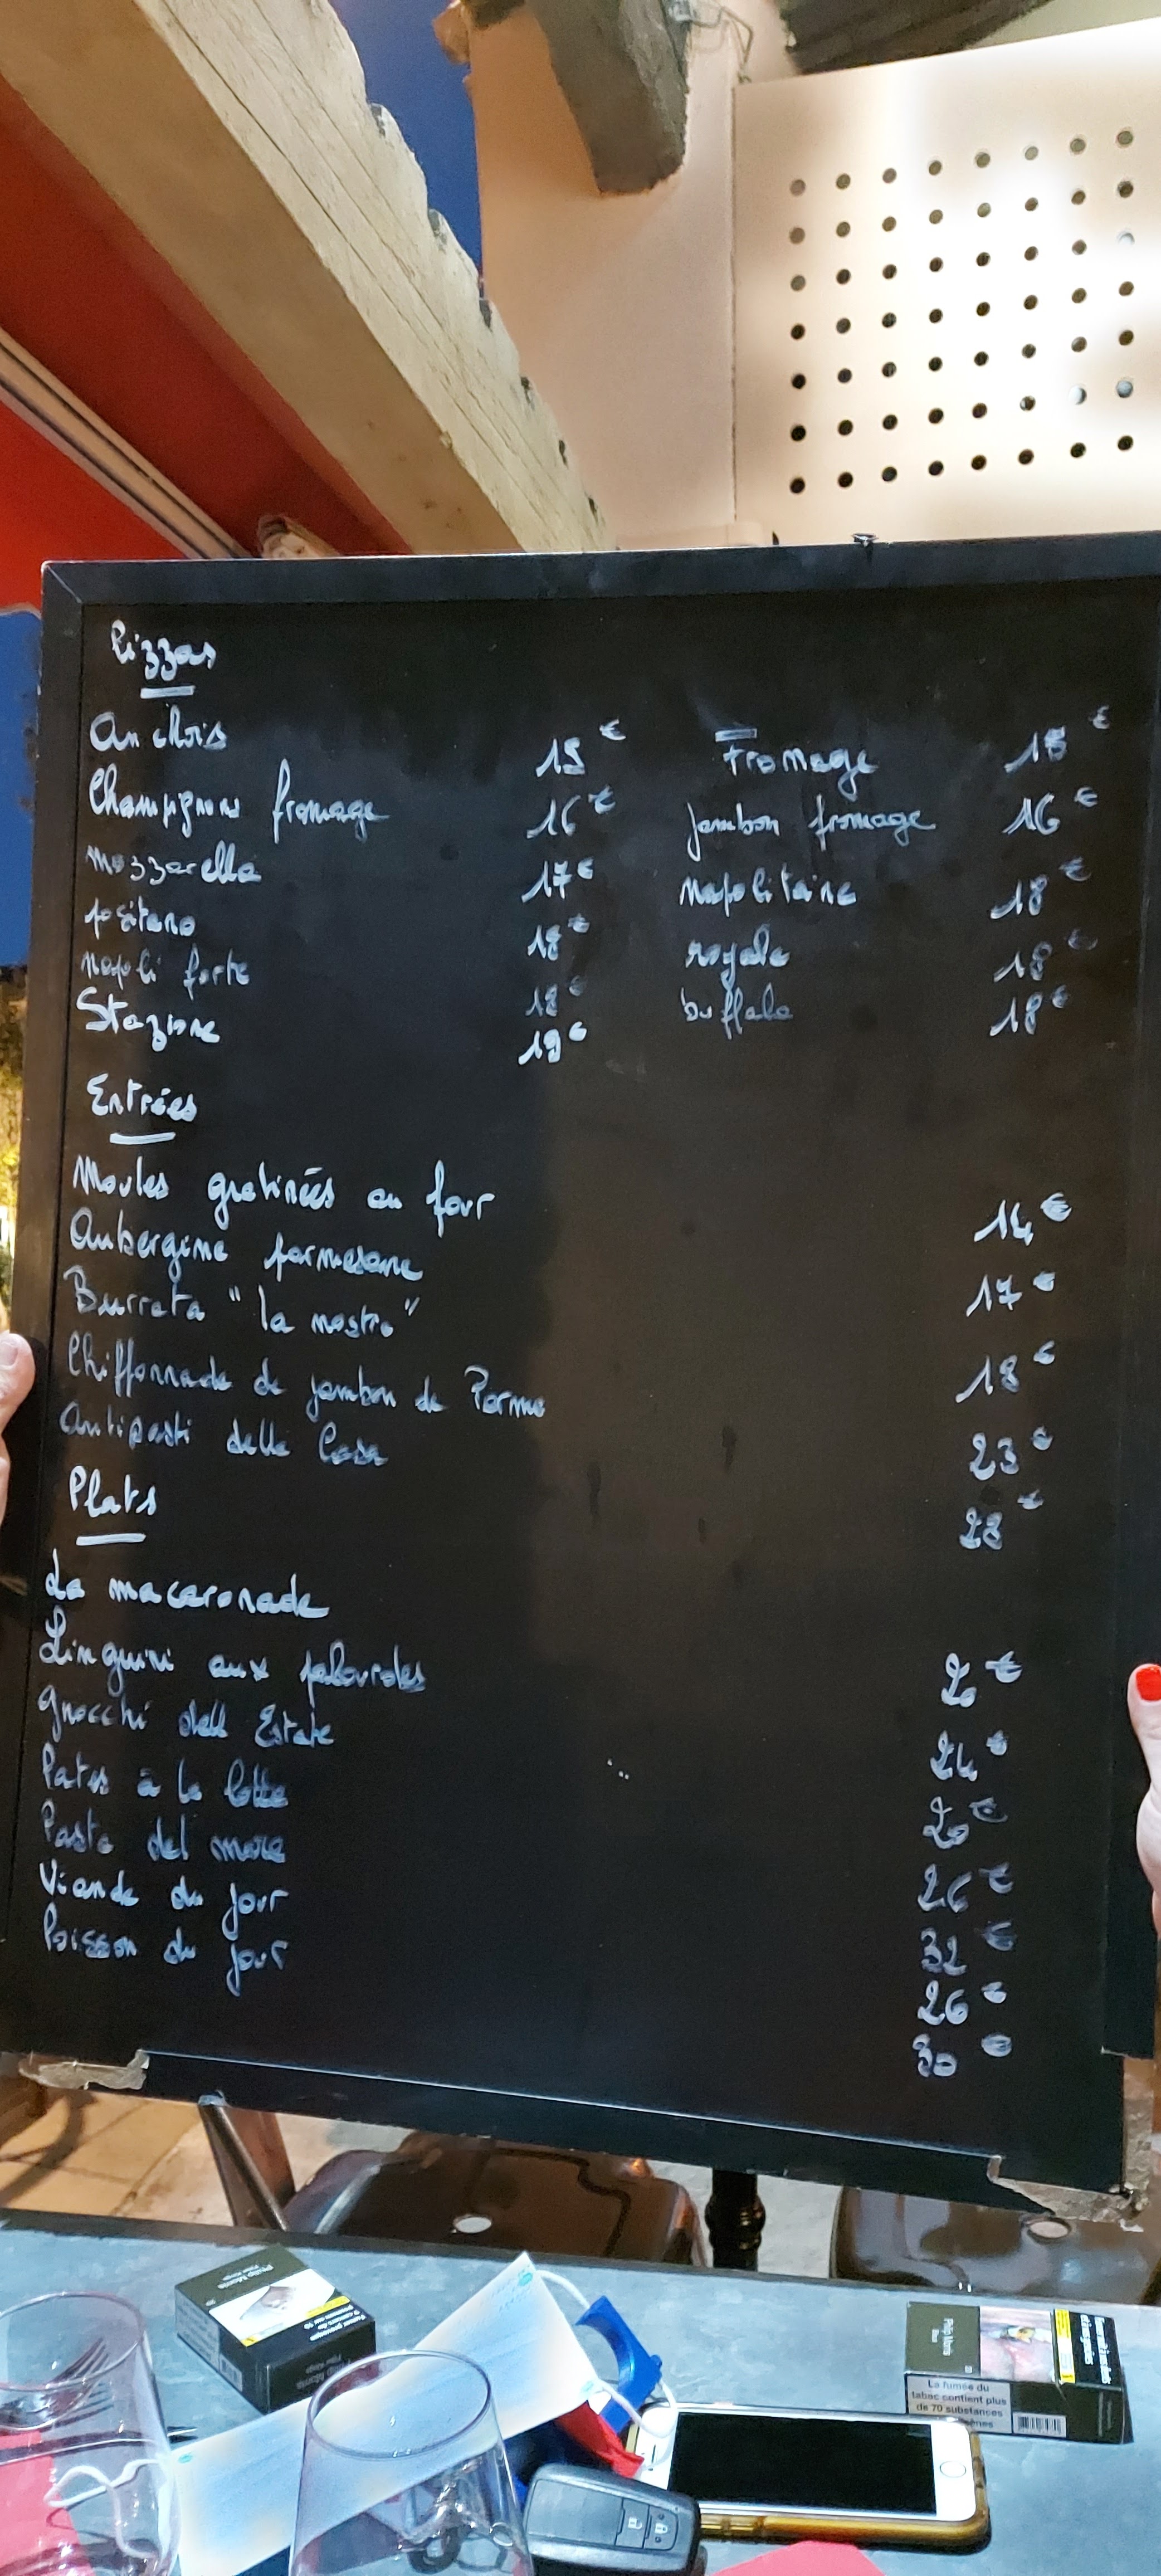 Pizzas
Anchois 15€
Fromage 15€
Champignons fromage 16€
jambon fromage 16€
mozzarella 17€
napolitaine 18€
positano 18€
royale 18€
napoli forte 18€
buffala 18€
Stazione 19€
Entrées
Moules gratinées au four 14€
Aubergine parmesane 17€
Burrata "la nostra" 18€
Chiffonnade de jambon de Parme 23€
Antipasti della Casa 28€
Plats
La macaronade 20€
Linguini aux palourdes 24€
Gnocchi dell Estate 20€
Pates à la lotte 26€
Pasta del mare 32€
Viande du jour 26€
Poisson du jour 30€
Philip Morris
Philip Morris
La fumée du
tabac contient plus
de 70 substances